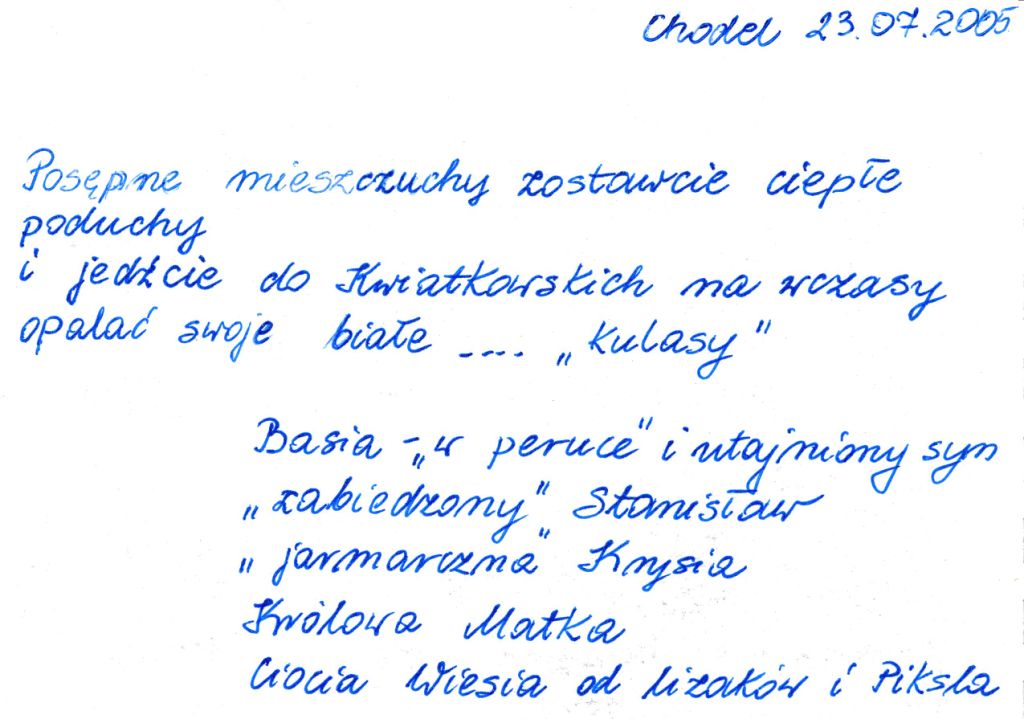 Chodel 23.07.2005
Posępne mieszczuchy zostawcie ciepłe
poduchy
i jedźcie do Kwiatkowskich na wczasy
opalać swoje białe .... „kulasy"
Basia - „w peruce" i utajniony syn
„zabiedzony" Stanisław
„jarmarczna" Krysia
Królowa Matka
Ciocia Wiesia od lizaków i Piksla